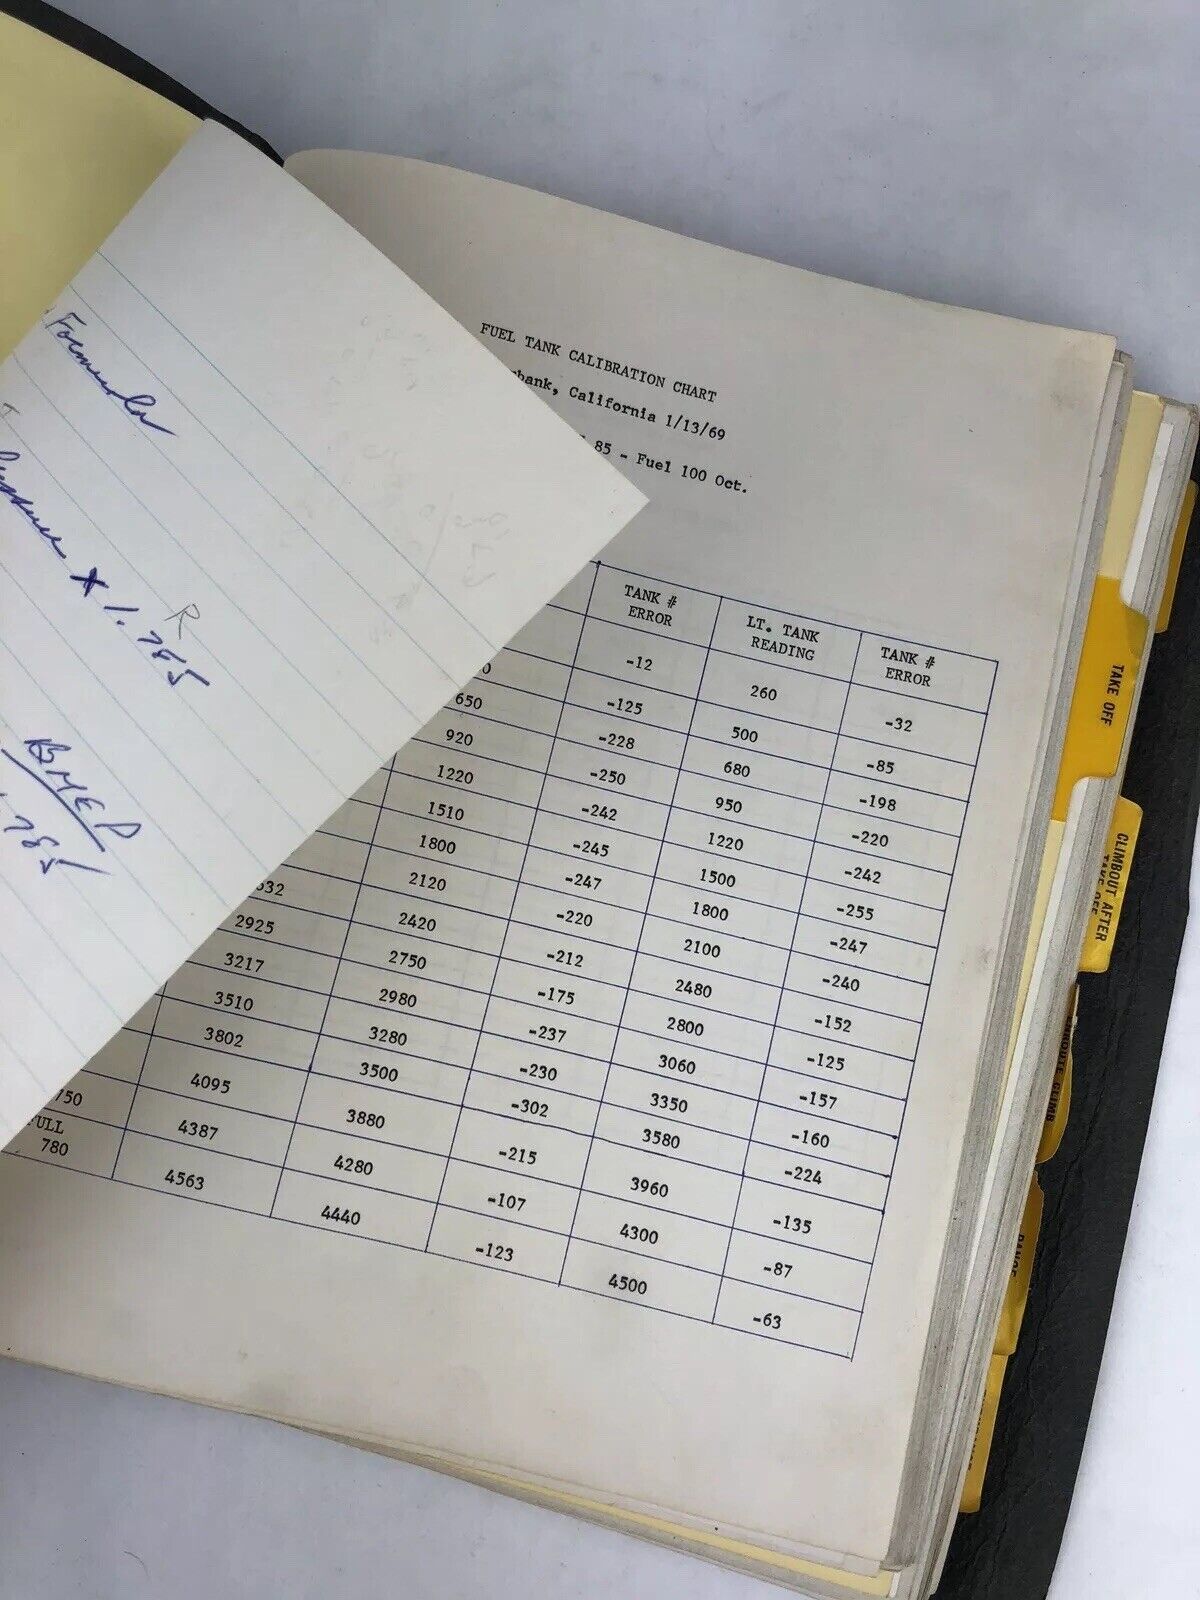 Formula
X 1.785
R
BMEP
FUEL TANK CALIBRATION CHART
California 1/13/69
85 - Fuel 100 Oct.
TANK # ERROR LT. TANK READING TANK # ERROR
-12 260 -32
-125 500 -85
650 -228 680 -198
920 -250 950 -220
1220 -242 1220 -242
1510 -245 1500 -255
1800 -247 1800 -247
2120 -220 2100 -240
2420 -212 2480 -152
2925 2750 -175 2800 -125
3217 2980 -237 3060 -157
3510 3280 -230 3350 -160
3802 3500 -302 3580 -224
4095 3880 -215 3960 -135
750 4387 4280 -107 4300 -87
FULL
780 4563 4440 -123 4500 -63
TAKE OFF
CLIMBOUT AFTER
TAKE OFF
CLIMB